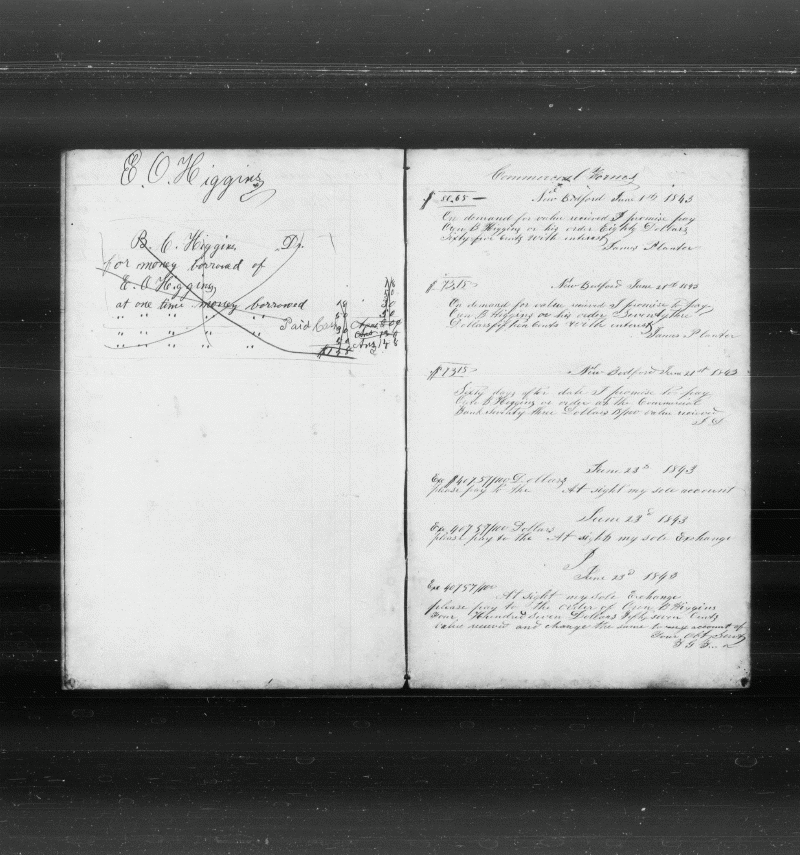 E. O. Higgins
B. C. Higgins Dr.
for money borrowed of
E. O. Higgins
at one time money borrowed
" " " " "
" " " " " Paid
" " " " "
$1.50
Commercial Forms
$80.65 — New Bedford June 1st 1843
On demand for value received I promise pay
Oren B Higgins or his order Eighty Dollars
Sixty five Cents with interest
James Planter
$73.15 New Bedford June 20th 1843
On demand for value received I promise to pay
Oren B Higgins or his order Seventy three
Dollars fifteen Cents with interest
James Planter
$73.15 New Bedford June 21st 1843
Sixty days after date I promise to pay
Oren B Higgins or order at the Commercial
Bank Seventy three Dollars 15/100 value received
June 23d 1843
Exc $407 57/100 Dollars
please pay to the At sight my sole account
June 23d 1843
Exc 407 57/100 Dollars
please pay to the At sight my sole Exchange
June 23d 1843
Exc 407 57/100
At sight my sole Exchange
please pay to the order of Oren B Higgins
Four Hundred Seven Dollars fifty seven Cents
value received and charge the same to my account of
Your Obt Servt